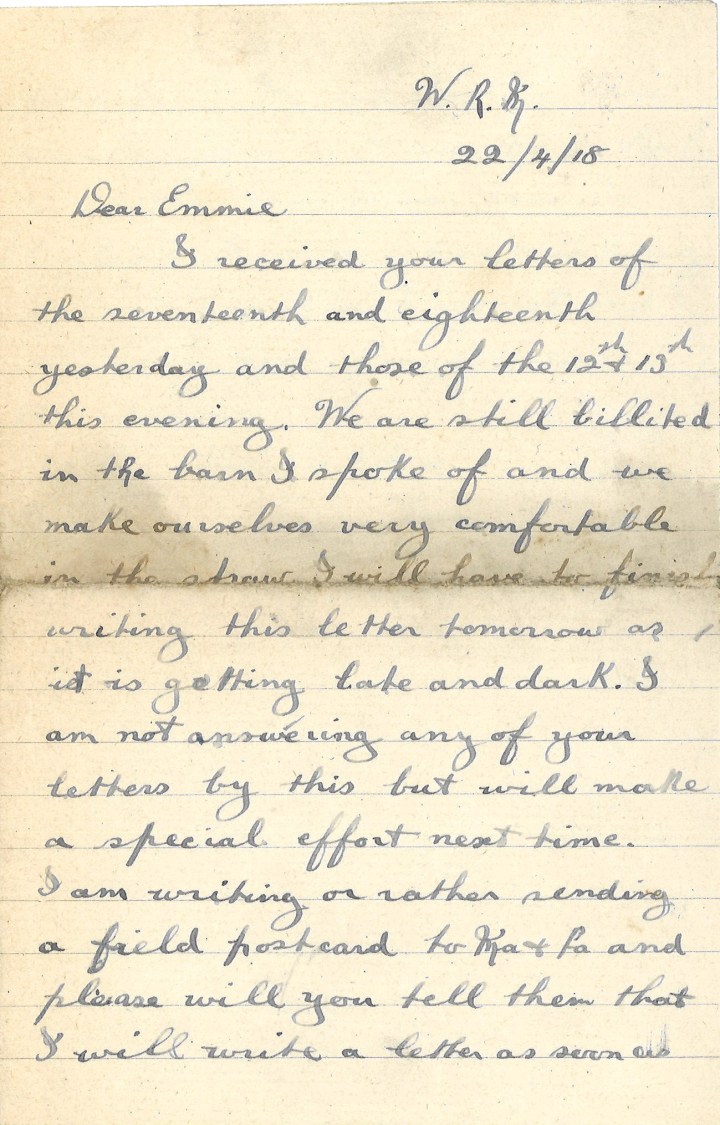 W. R. M.
22/4/18
Dear Emmie
I received your letters of
the seventeenth and eighteenth
yesterday and those of the 12th & 13th
this evening. We are still billited
in the barn I spoke of and we
make ourselves very comfortable
in the straw I will have to finish
writing this letter tomorrow as
it is getting late and dark. I
am not answering any of your
letters by this but will make
a special effort next time.
I am writing or rather sending
a field postcard to Ma & Pa and
please will you tell them that
I will write a letter as soon as